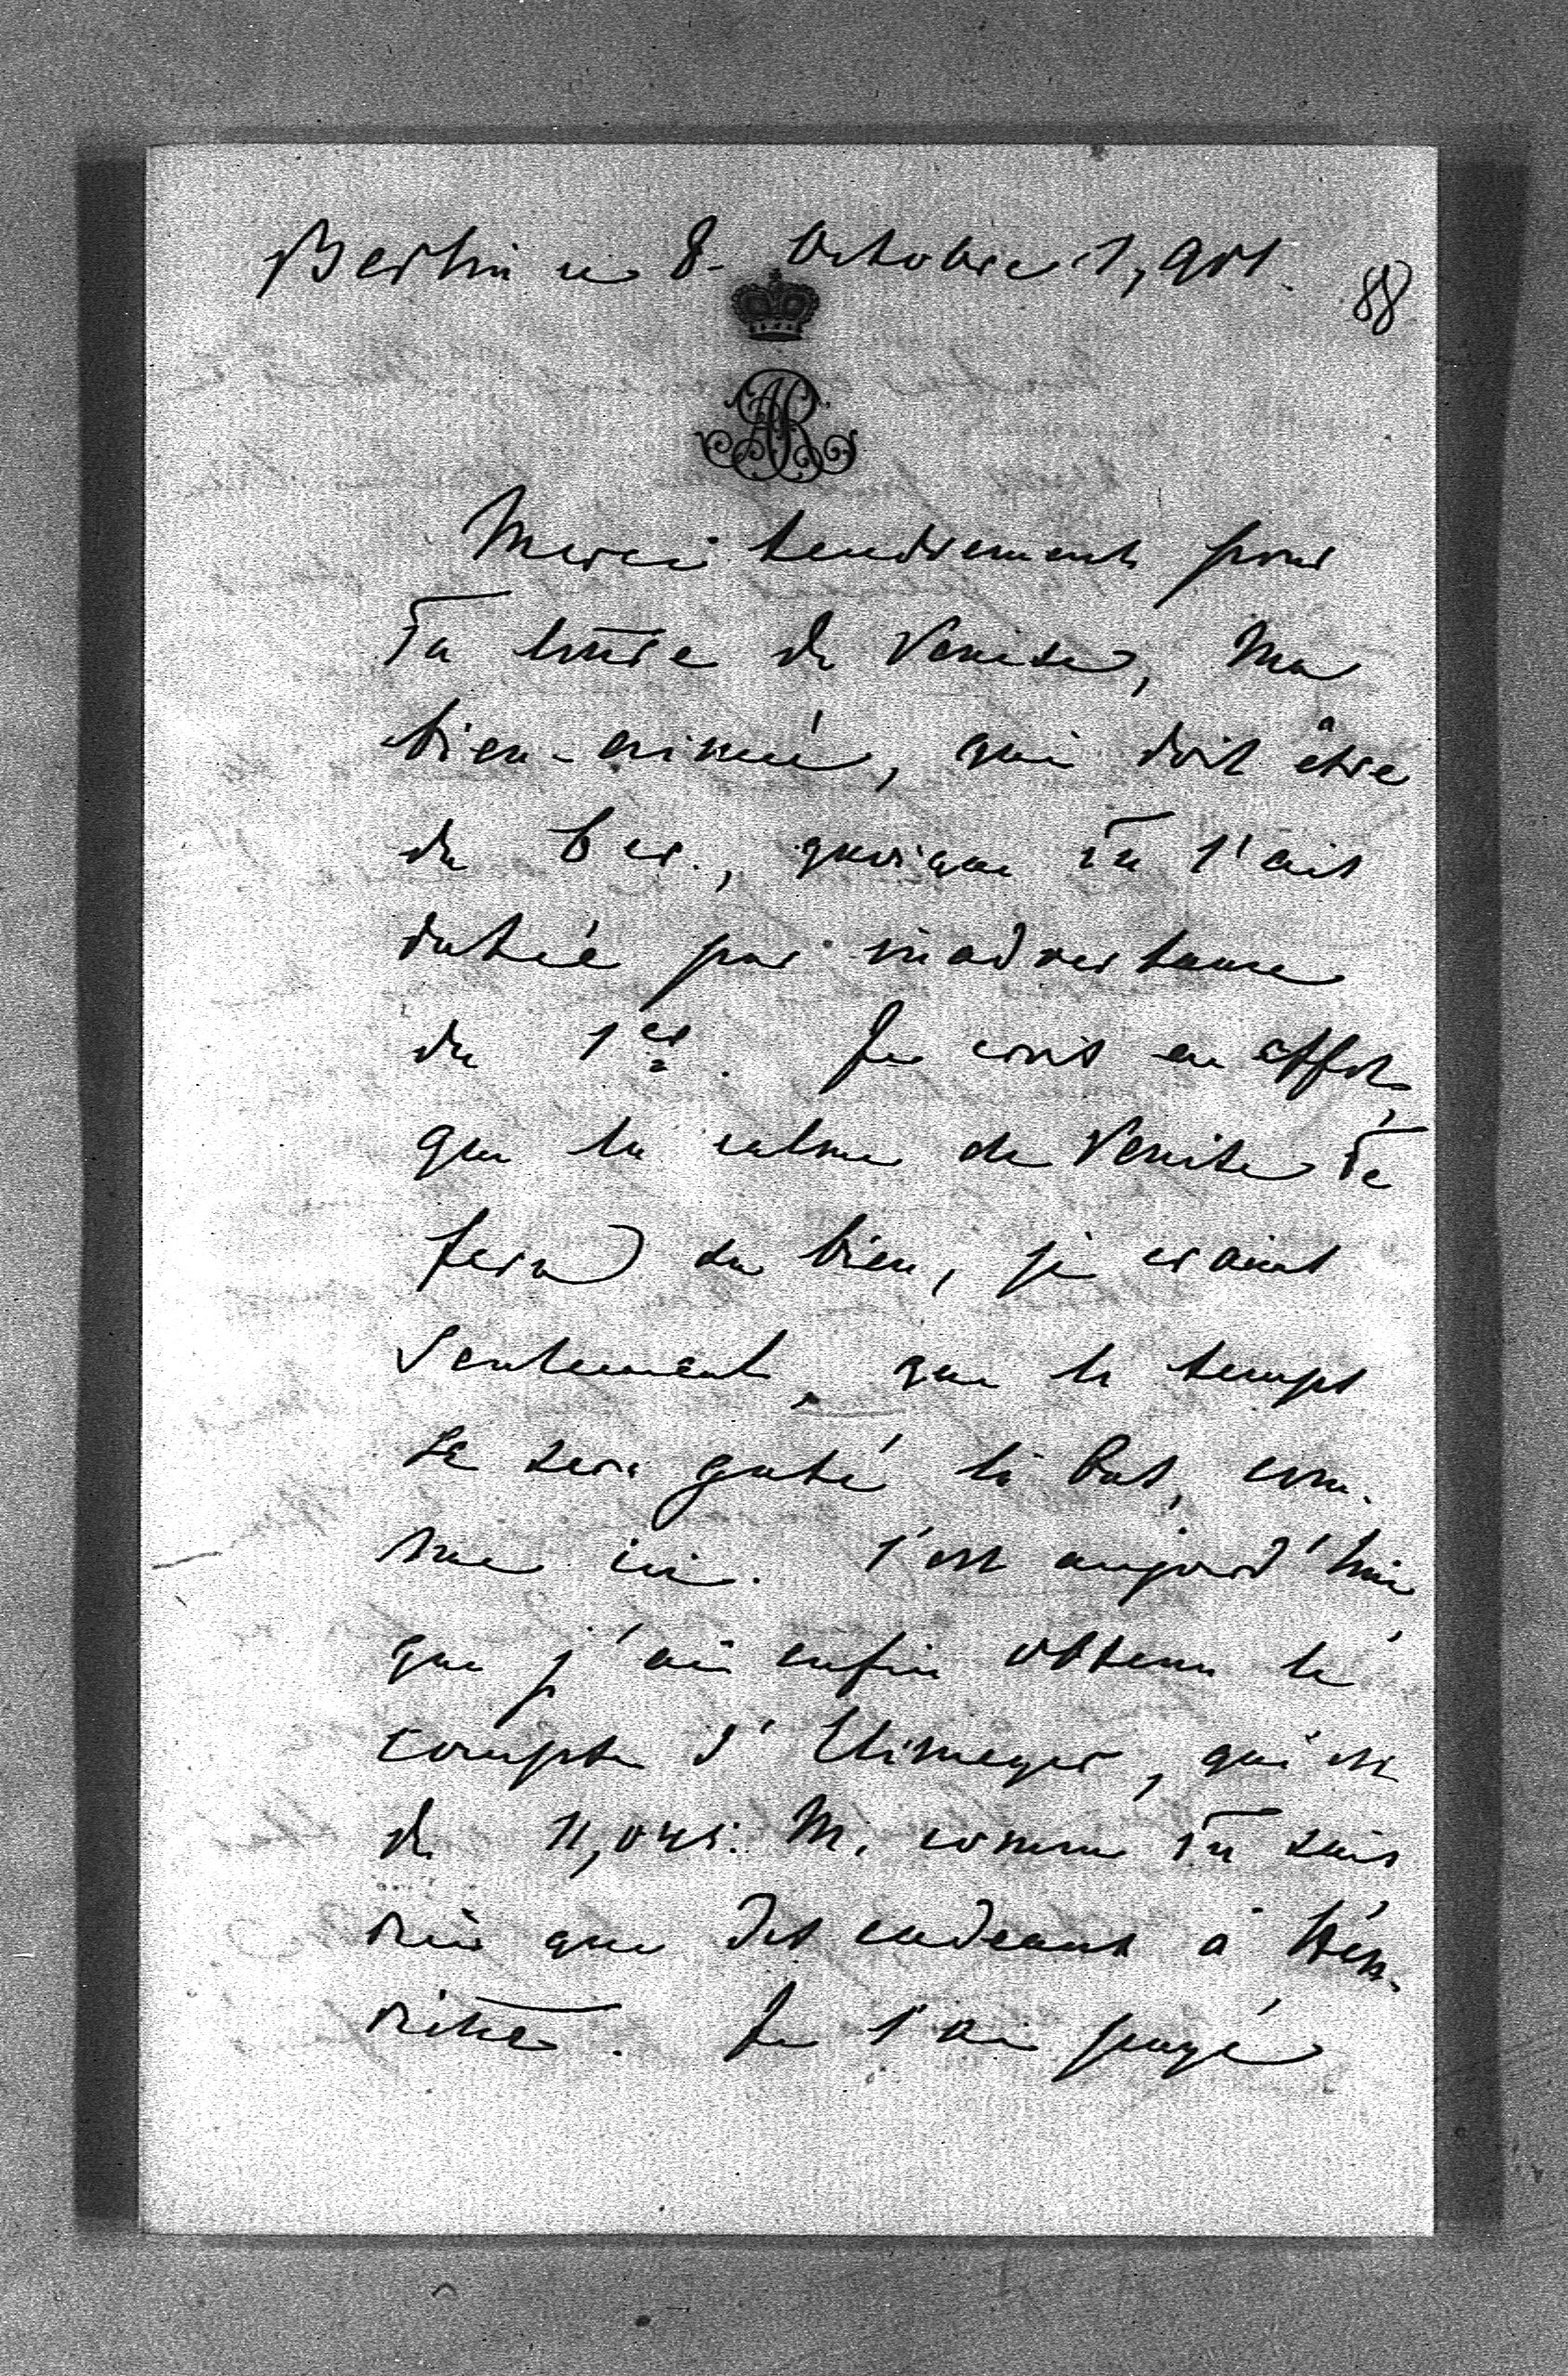 Berlin ce 8. Octobre 1,901.
88
AR
Merci tendrement pour
Ta lettre de Venise, Ma
bien-aimée, qui doit être
du 6 cr., quoique Tu l'ais
datée par inadvertance
du 1er. Je crois en effet,
que le calme de Venise Te
fera du bien, je crains
seulement, que le temps
se sera gaté là bas, com-
me ici. C'est aujourd'hui,
que j'ai enfin obtenu le
compte d' qui est
de M. comme Tu sais
rien que des cadeaux à Hen-
riette. Je l'ai payé